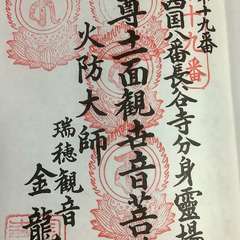 十九番
十九番
西国八番長谷寺分身霊場
尊十一面観世音菩
火防大師
瑞穂観音
金龍